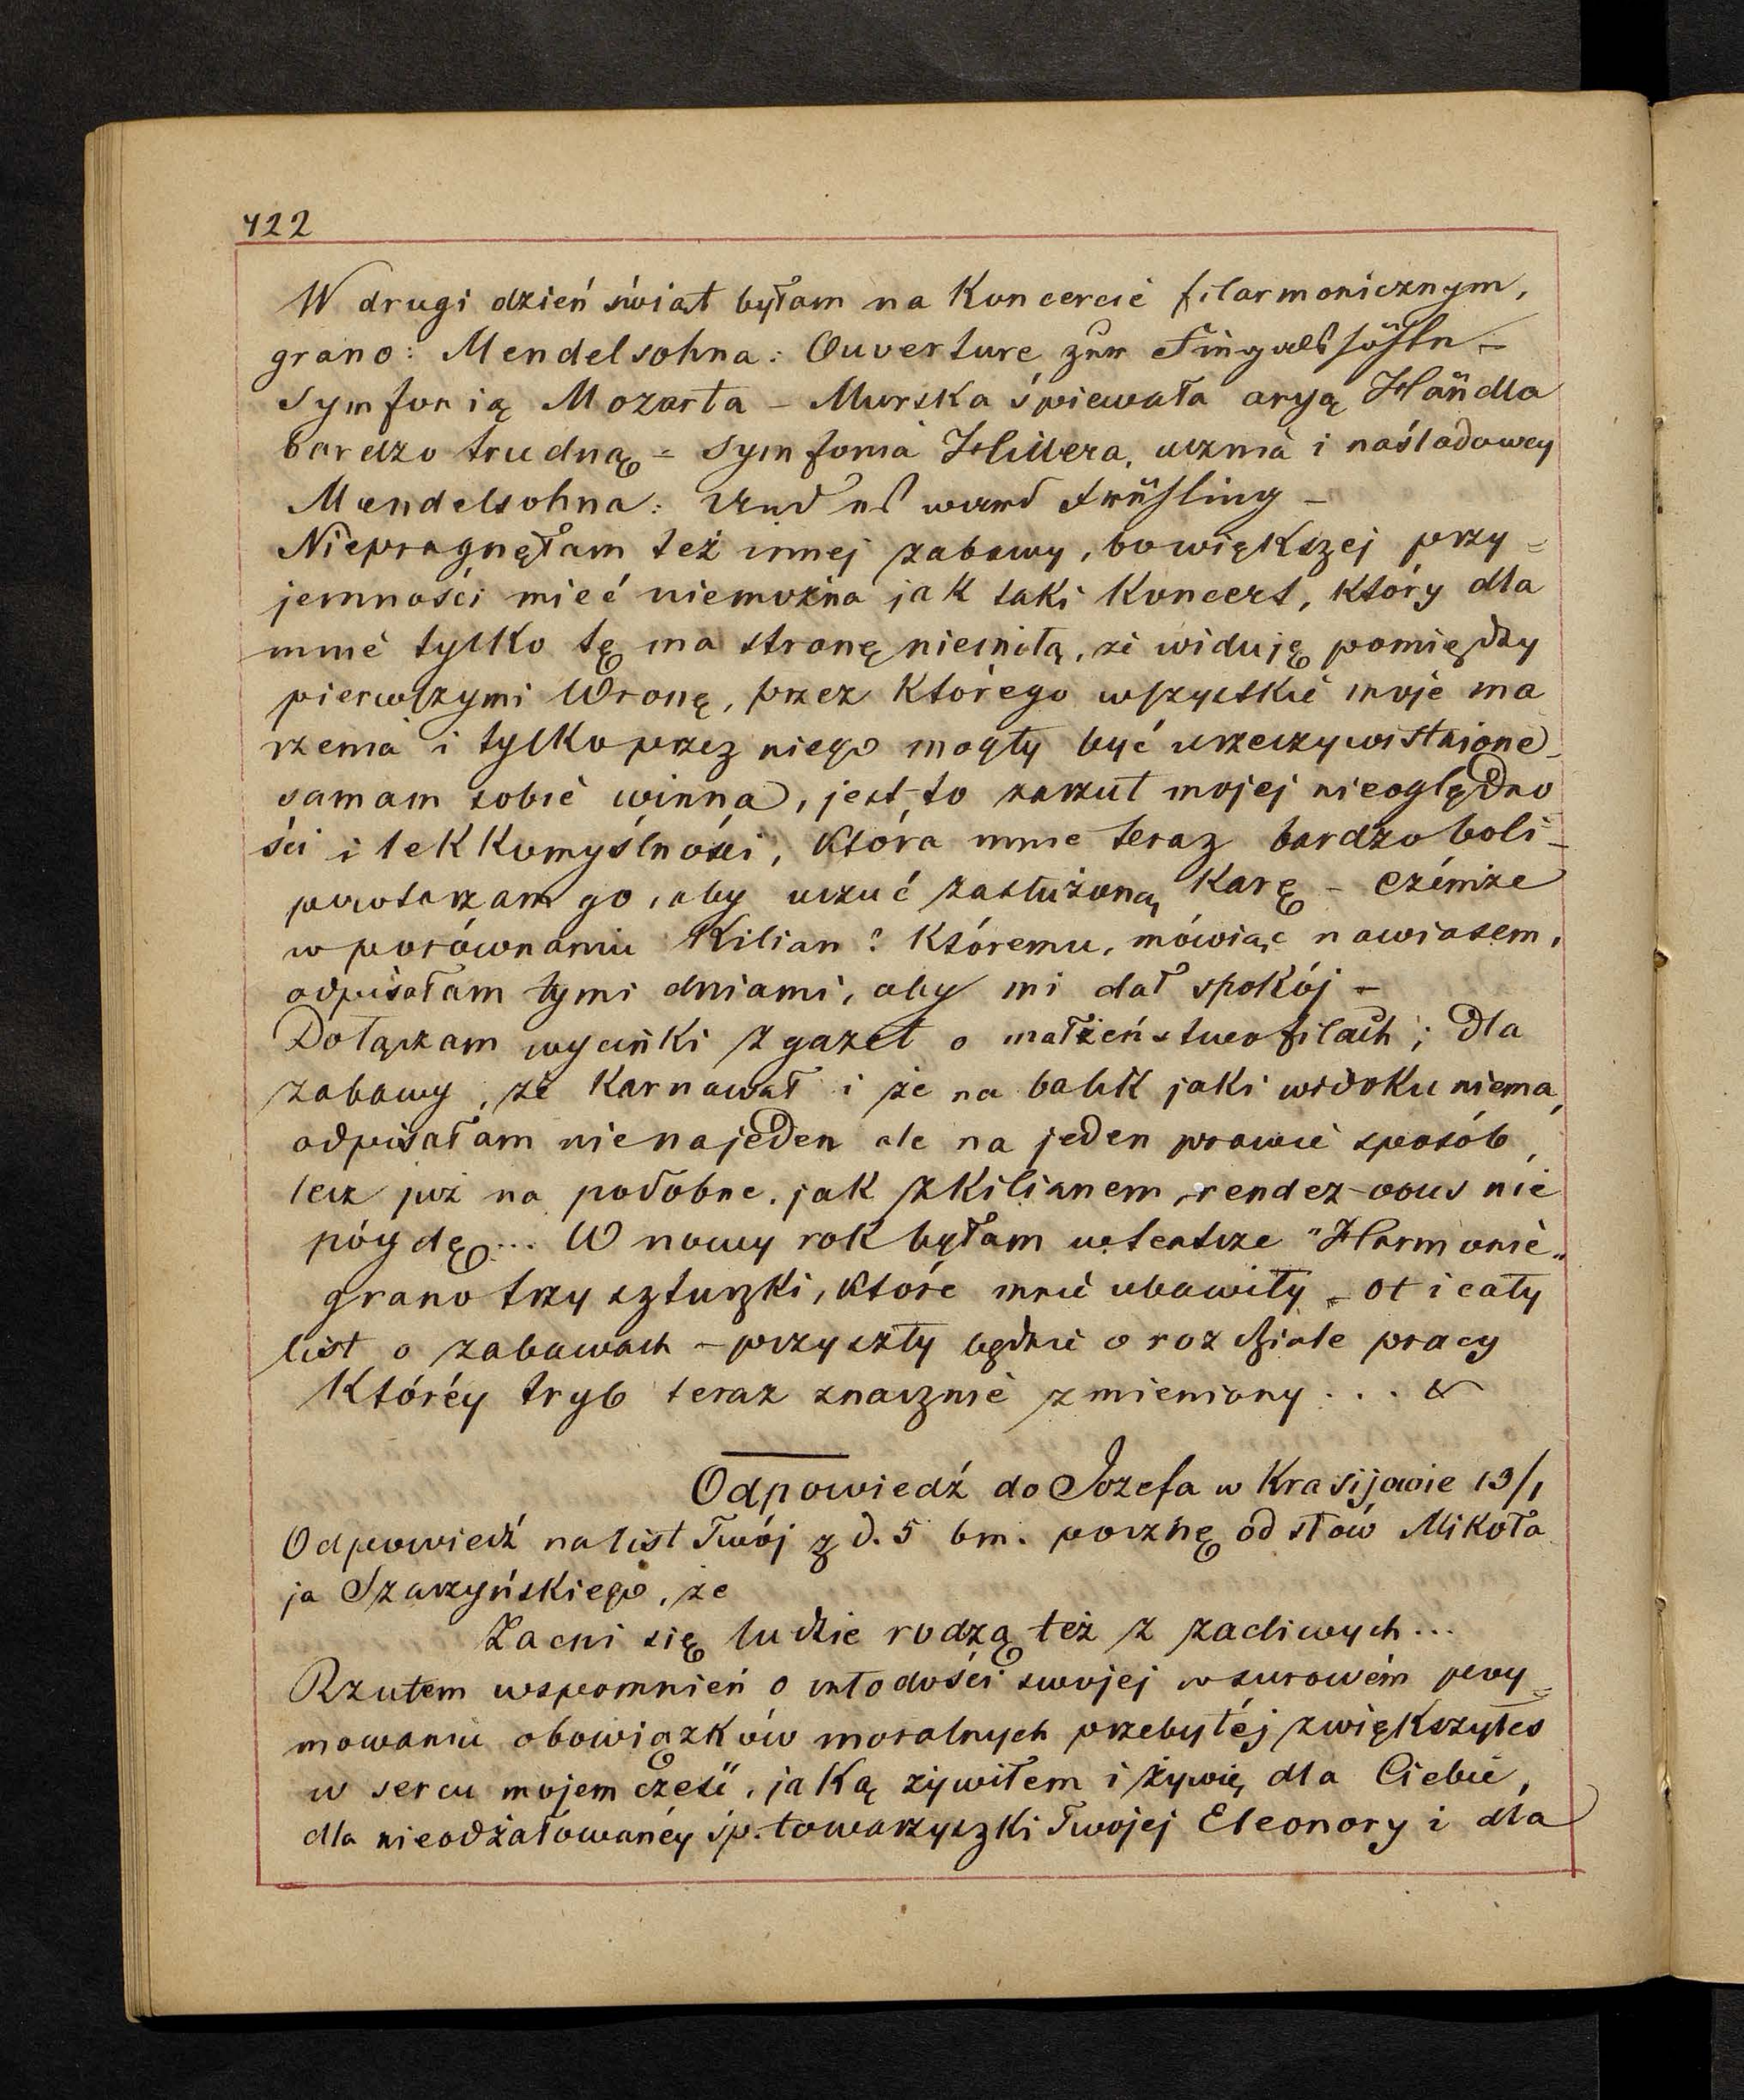 422
W drugi dzień świąt byłam na Koncercie filarmonicznym,
grano: Mendelsohna: Ouverture zur Fingalshöhle –
Symfonią Mozarta – Murska śpiewała aryą Händla
bardzo trudną = Symfonia Hillera, ucznia i naśladowcy
Mendelsohna: Und es ward Frühling –
Niepragnęłam też innej zabawy, bo większej przy=
jemności mieć niemożna jak taki Koncert, który dla
mnie tylko tę ma stronę niemiłą, że widuję pomiędzy
pierwszymi Wronę, przez którego wszystkie moje ma
rzenia i tylko przez niego mogły być urzeczywistnione –
samam sobie winna, jest to zarzut mojej nieoględno
ści i lekkomyślności, która mnie teraz bardzo boli –
powtarzam go, aby uczuć zasłużoną Karę – czémże
w porównaniu Kilian? Któremu, mówiąc nawiasem,
odpisałam tymi dniami, aby mi dał spokój –
Dołączam wycinki z gazet o małżeństwofilach; dla
zabawy, że Karnawał i że na balik jaki widoku niema,
odpisałam nie na jeden ale na jeden prawie sposób,
lecz już na podobne, jak z Kilianem, rendez-vous nie
póydę... W nowy rok byłam w teatrze "Harmonie„
grano trzy sztuczki, które mnie ubawiły – Ot i cały
list o zabawach – przyszły będzie o rozdziale pracy
Któréy tryb teraz znacznie zmieniony . . . &
Odpowiedź do Jozefa w Krasijowie 13/1
Odpowiedź na list Twój z d. 5 bm. pocznę od słów Mikoła
ja Szarzyńskiego, że
Zacni się ludzie rodzą też z zacliwych...
Rzutem wspomnień o młodości swojej w surowém poy=
mowaniu obowiązków moralnych przebyłéj zwiększyłeś
w sercu mojem cześć, jaką żywiłem i żywię dla Ciebie,
dla nieodżałowanéy śp. towarzyszki Twojej Eleonory i dla